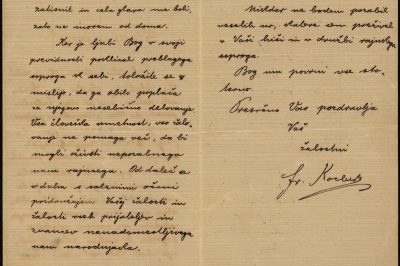 zaklenil in cela glava me boli,
zato ne morem od doma.
Ker je ljubi Bog v svoji
previdnosti poklical preblagega
soproga k sebi, tolažite se z
mislijo, da ga obilo poplača
za njegovo nesebično delovanje
Vsa človeška umetnost, vse žalo-
vanje ne pomaga več, da bi
mogli oživiti nepozabnega
nam rajnega. Od daleč a
v duhu s solznimi očmi
pridružujem Vašej žalosti in
žalosti vseh prijateljev in
znancev nenadomestljivega
nam narodnjaka.
Nikdar ne bodem pozabil
veselih ur, katere sem prežival
v Vaši hiši in v družbi rajnkega
soproga.
Bog mu povrni vse sto-
terno.
Presrčno Vas pozdravlja
Vaš
žalostni
fr.